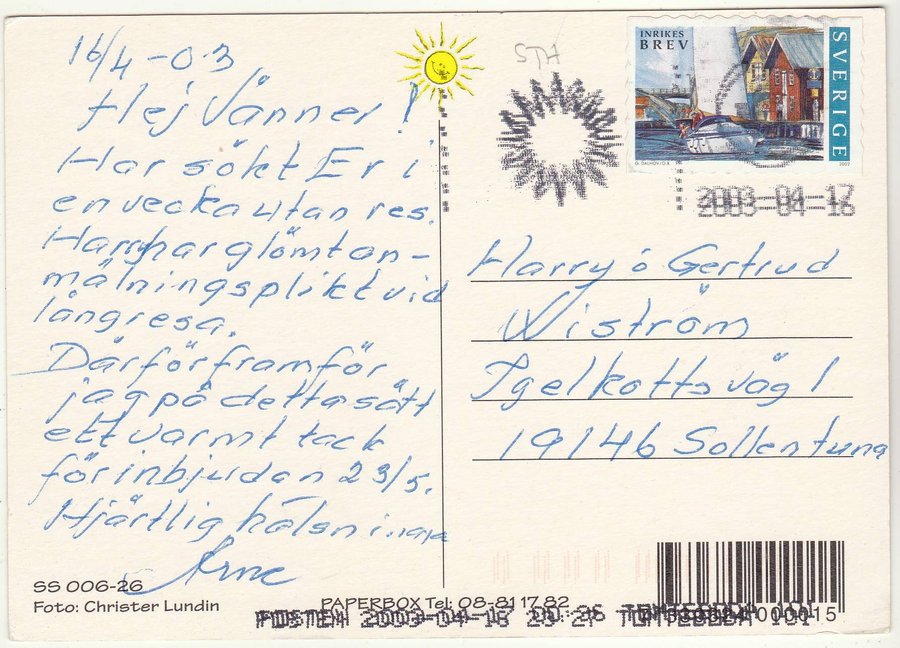 16/4-03
Hej Vänner!
Har sökt Er i
en vecka utan res.
Harry har glömt an-
mälningsplikt vid
långresa.
Därför framför
jag på detta sätt
ett varmt tack
för inbjudan 23/5.
Hjärtlig hälsningar
Arne
SS 006-26
Foto: Christer Lundin
PAPERBOX Tel: 08-81 17 82
STH
INRIKES
BREV
SVERIGE
G. DALHOV/O.R.
2002
2003-04-17
Harry o Gertrud
Wiström
Igelkottsväg 1
19146 Sollentuna
POSTEN 2003-04-1